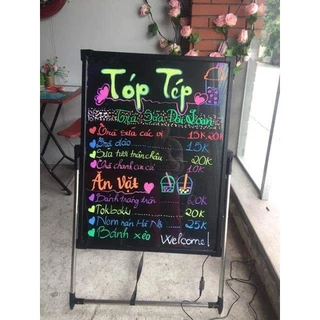 Tóp Tép
Trà Sữa Đài Loan
Trà sữa các vị 15K, 20K
Trà đào 15K
Sữa tươi trân châu 20K
Trà chanh 10K
Ăn Vặt
Bánh tráng trộn 20K
Tokboki 20K
Nem rán Hà Nội 25K
Bánh xèo
Welcome!